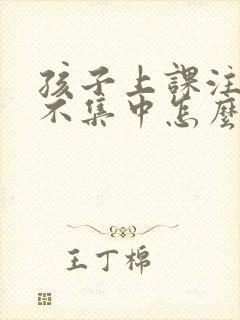 孩子上課注
不集中怎麼
王丁棉